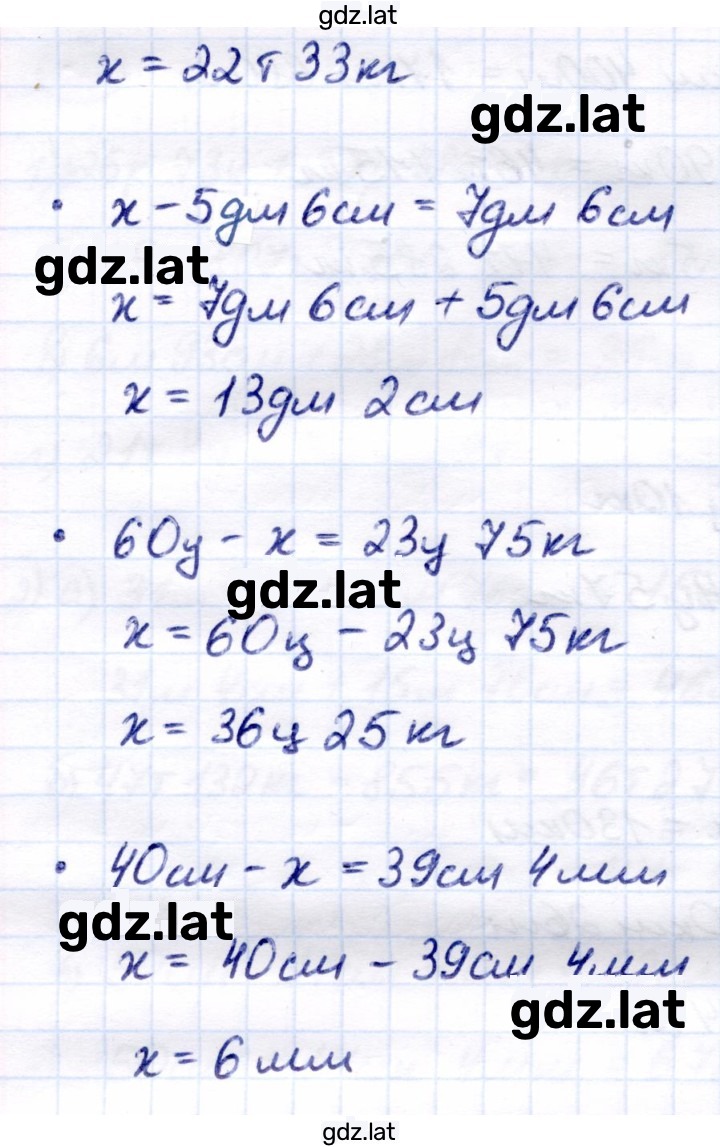 gdz.lat
x = 22т 33кг
gdz.lat
· x - 5дм 6см = 7дм 6см
gdz.lat
x = 7дм 6см + 5дм 6см
x = 13дм 2см
· 60ц - x = 23ц 75кг
gdz.lat
x = 60ц - 23ц 75кг
x = 36ц 25кг
· 40см - x = 39см 4мм
gdz.lat
x = 40см - 39см 4мм
gdz.lat
x = 6мм
gdz.lat